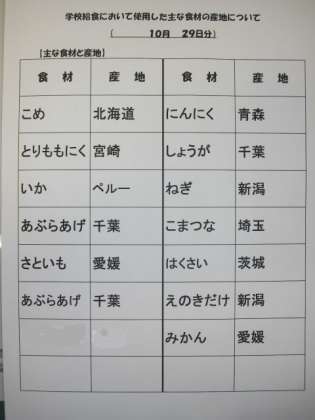 学校給食において使用した主な食材の産地について
( 10月 29日分)
【主な食材と産地】
食 材 産 地 食 材 産 地
こめ 北海道 にんにく 青森
とりももにく 宮崎 しょうが 千葉
いか ペルー ねぎ 新潟
あぶらあげ 千葉 こまつな 埼玉
さといも 愛媛 はくさい 茨城
あぶらあげ 千葉 えのきだけ 新潟
みかん 愛媛